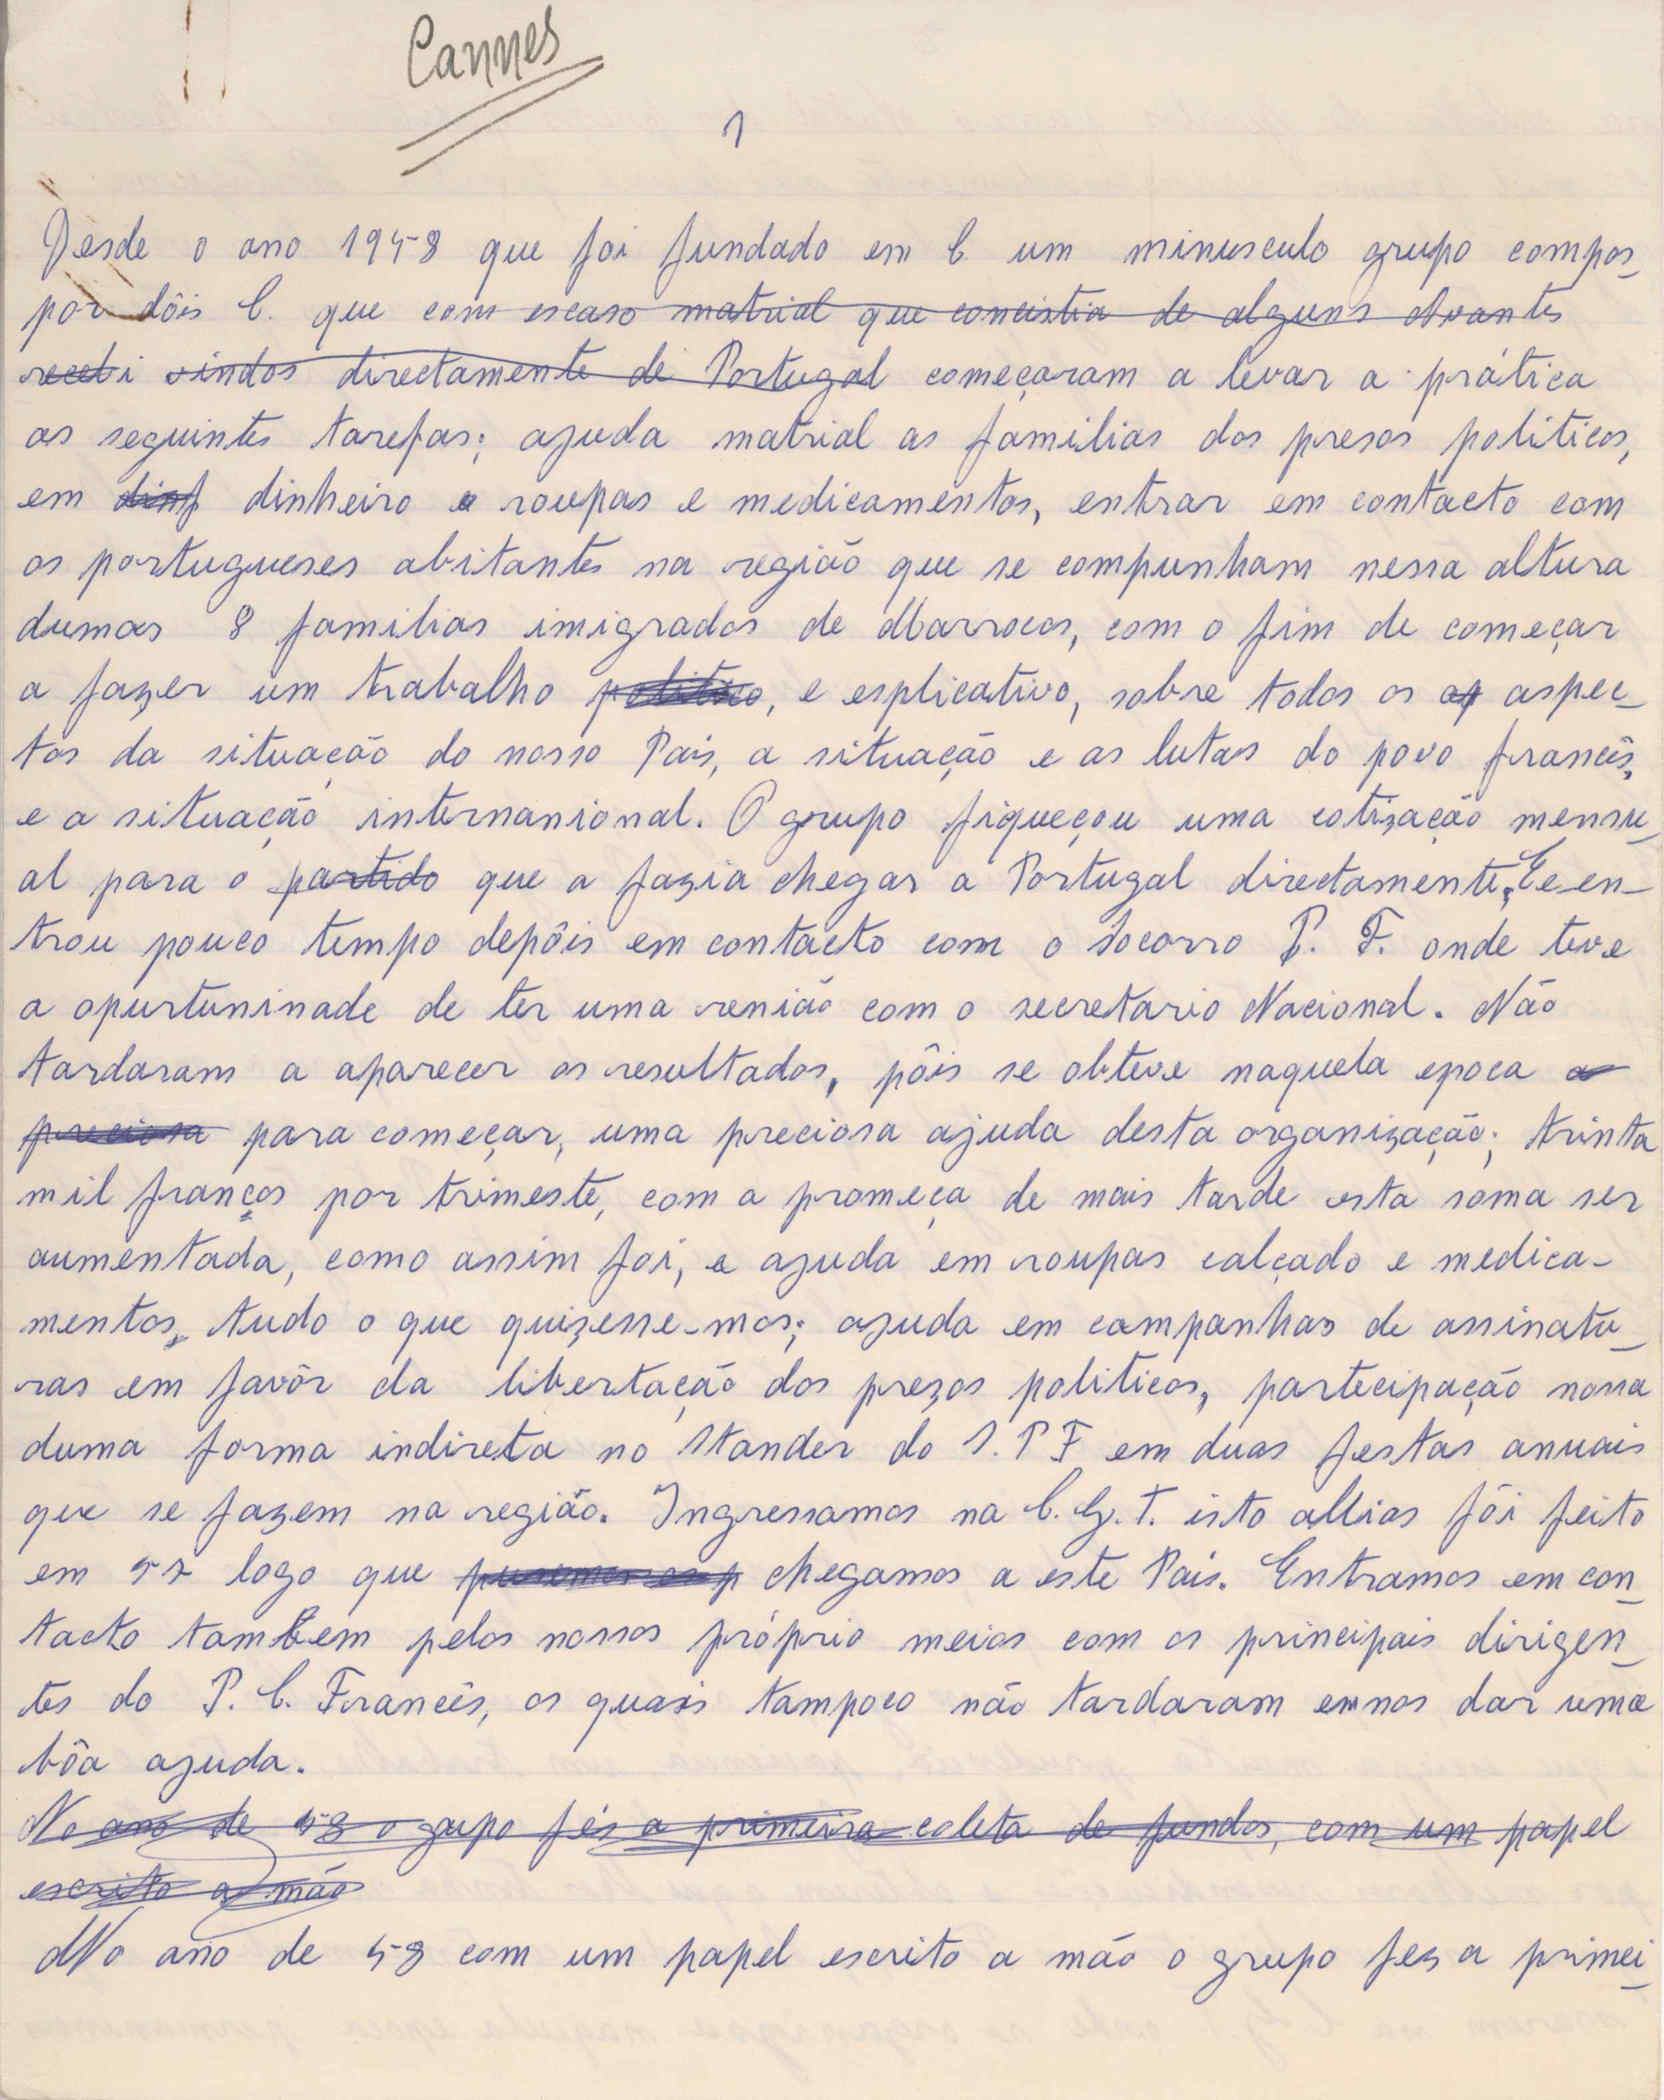 Cannes
1
Desde o ano 1958 que foi fundado em C um minusculo grupo compos-
por dôis C. que com escaso matrial que concistia de alguns Avantes
recebi vindos directamente de Portugal começaram a levar a prática
as seguintes tarefas; ajuda matrial as familias dos presos politicos,
em dinf dinheiro e roupas e medicamentos, entrar em contacto com
os portugueses abitantes na região que se compunham nessa altura
dumas 8 familias imigradas de Marrocos, com o fim de começar
a fazer um trabalho politico, e esplicativo, sobre todos os ap aspec-
tos da situação do nosso Pais, a situação e as lutas do povo francês,
e a situação internanional. O grupo fiqueçou uma cotização mensu-
al para o partido que a fazia chegar a Portugal directamente, E e en-
trou pouco tempo depôis em contacto com o Socorro P. F. onde teve
a opurtuninade de ter uma renião com o secretario Nacional. Não
tardaram a aparecer os resultados, pôis se obteve naquela epoca a
preciosa para começar, uma preciosa ajuda desta organização; trinta
mil franços por trimeste, com a promeça de mais tarde esta soma ser
aumentada, como assim foi, e ajuda em roupas calçado e medica-
mentos, tudo o que quizesse-mos; ajuda em campanhas de assinatu-
ras em favôr da libertação dos prezos politicos, partecipação nossa
duma forma indireta no Stander do S. P F em duas festas anuais
que se fazem na região. Ingressamos na C. G. T. isto allias fôi feito
em 57 logo que chegamos a este Pais. Entramos em con-
tacto tambem pelos nossos próprio meios com os principais dirigen-
tes do P. C. Francês, os quais tampoco não tardaram em nos dar uma
bôa ajuda.
No ano de 58 o gupo fés a primeira coleta de fundos, com um papel
escrito a mão
No ano de 58 com um papel escrito a mão o grupo fez a primei-